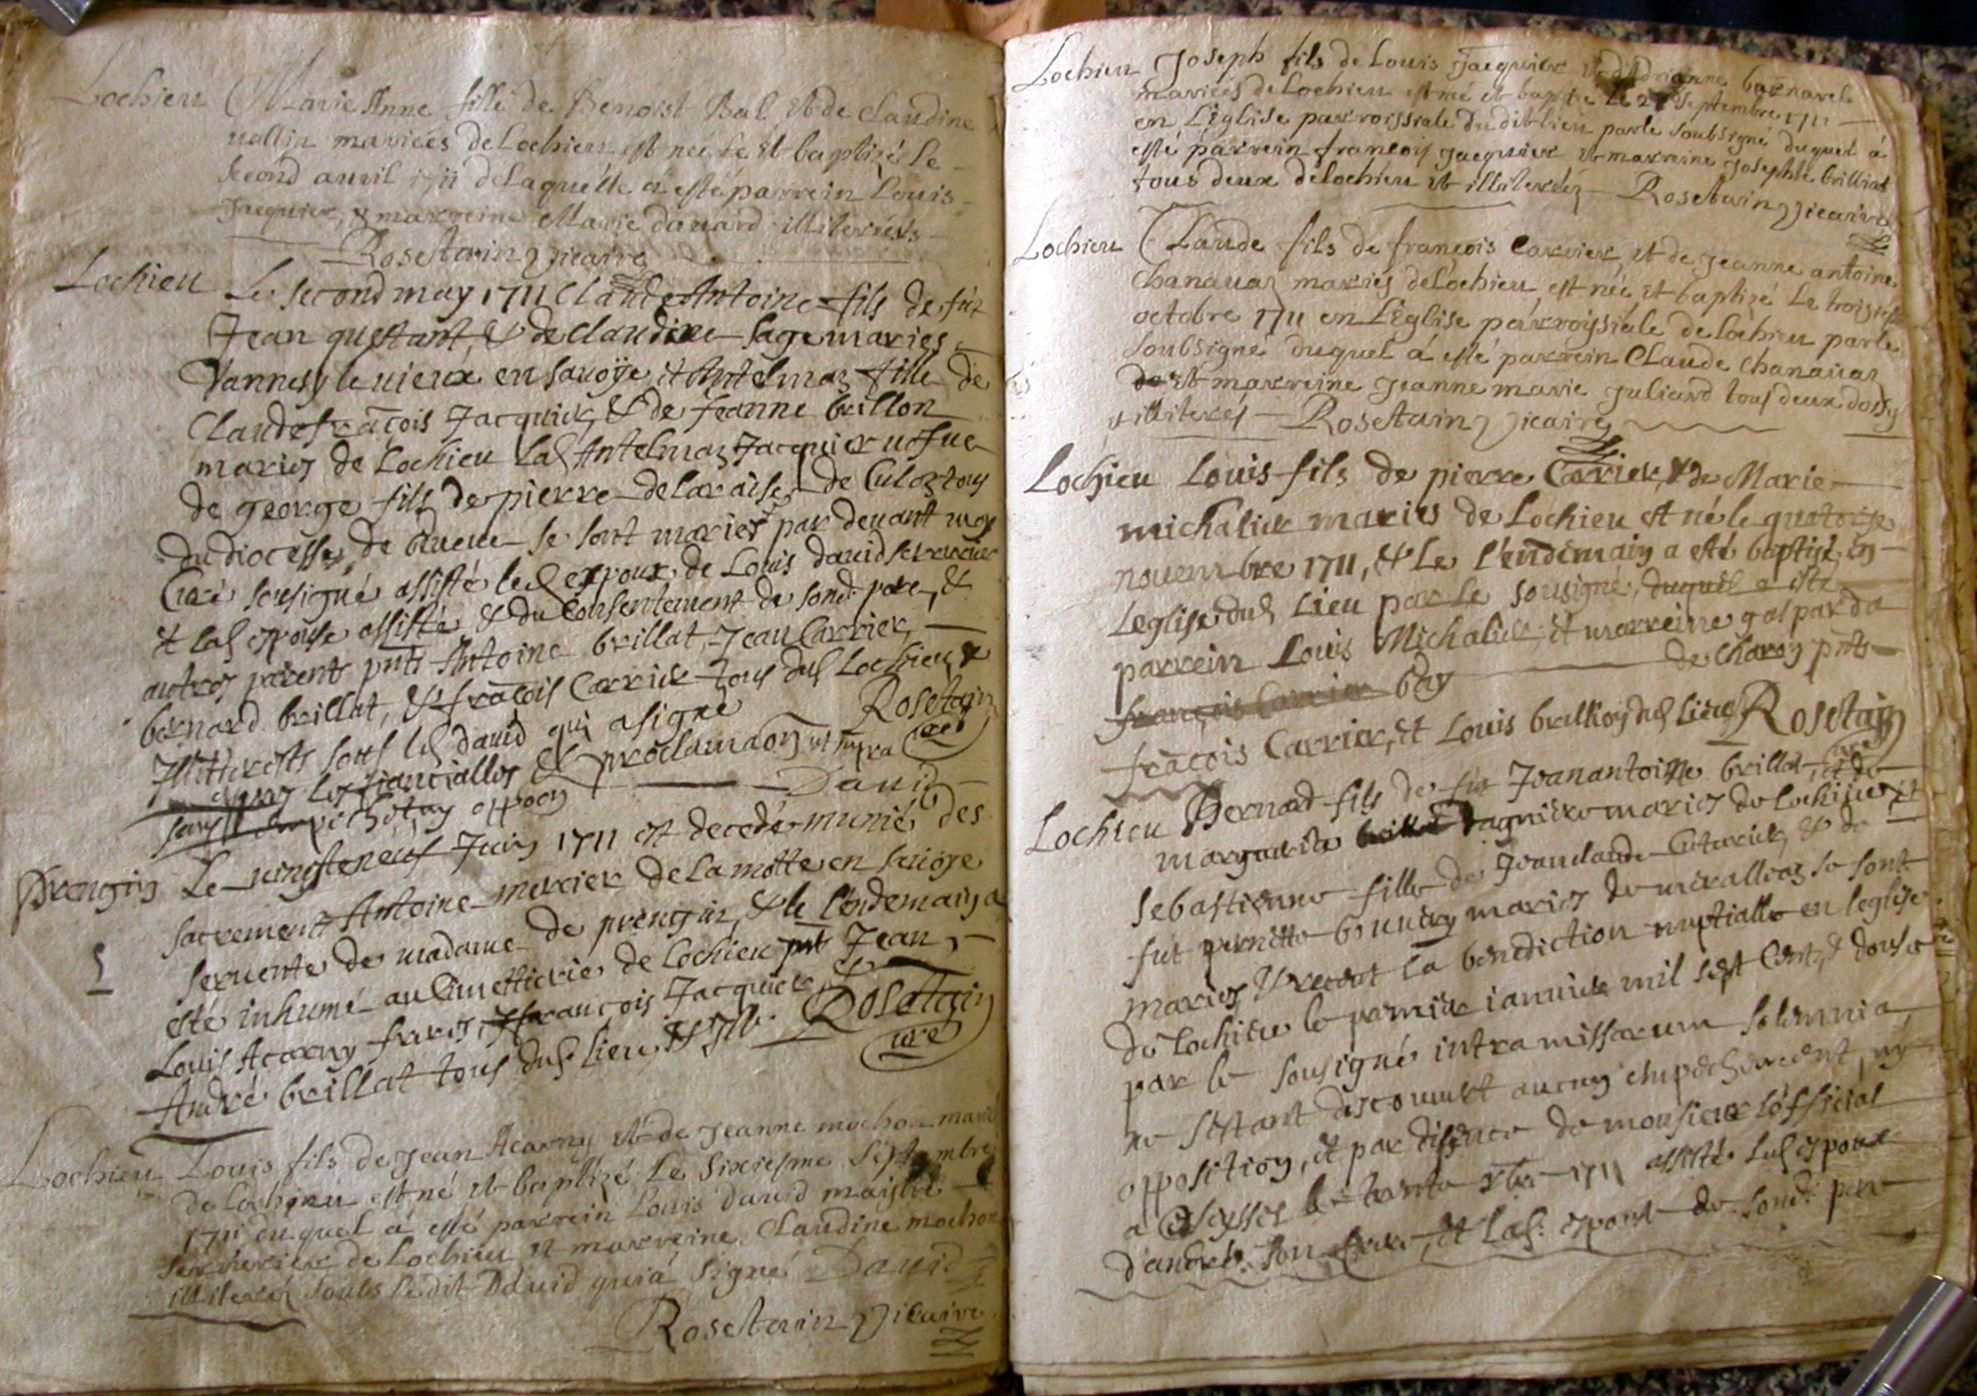 Lochieu Marie Anne fille de Benoist Bal et de Claudine
mariées de Lochieu est née et baptizé le
second auril 1711 de laquelle a esté parrein Louis
Jacquier, & marreine Marie dauard illiterés
Rosetain vicaire
Lochieu Le second may 1711 Claude Antoine fils de fut
Jean questant & de Claudine Sage maries
le uieux en sauoye et Antelmaz fille de
Claudefrãcois Jacquier, & de Jeanne brillon
maries de Lochieu lad Antelmaz Jacquier uesue
de george fils de pierre delaraise de Culoz tous
du diocesse de se sont maries par deuant moy
Curé sousigné assisté led espoux de Louis dauid serrurier
& lad espouse assistée & du consentement de sond pere, &
autres parents pnts Antoine brillat, Jean Carrier,
bernard brillat, & frãcois Carrier tous dud Lochieu &
Illitterests sauf led dauid qui a signé Rosetain
apres les fianciailles & proclamaõn ut supra curé
sans oppoon Dauid
Prengin Le uingteneuf Juin 1711 est decedé munie des
sacrements Antoine mercier de la motte en sauoye
seruente de madame de prengin, & le l'endemain a
esté inhumé au Cimettierie de Lochieu pnt Jean,
Louis Acarny freres, françois Jacquier &
André brillat tous dud lieu & Ill. Rosetain
curé
Lochieu Louis fils de Jean Acarny et de Jeanne mochon mariés
de Lochieu est né et baptizé le sixiesme septembre
1711 duquel a esté parrein Louis Dauid maistre
serrurier de Lochieu et marreine Claudine mochon
illiterés soubs ledit Dauid qui a signé Dauid
Rosetain vicaire
Lochieu Joseph fils de Louis Jacquier et d'Adrianne barnarel
mariés de Lochieu est né et baptize le septembre 1711
en L'Eglise parroissiale dudit lieu parle soubsigné duquel a
esté parrein francoys Jacquier et marreine Josephte brillat
tous deux de Lochieu et illiterés Rosetain vicaire
Lochieu Claude fils de françois Carrier et de Jeanne antoine
Chanauaz mariés de Lochieu est née et baptizé le troisiesme
octobre 1711 en L'Eglise parroyssiale de Lochieu parle
soubsigné duquel a esté parrein Claude Chanauaz
et marreine Jeanne marie Juliard tous deux
illiterés Rosetain vicaire
Lochieu Louis fils de pierre Carrier, & de Marie
michalier maries de Lochieu est né le quatorze
nouembre 1711, & le l'endemain a esté baptisé en
leglise dud Lieu par le sousigné, duquel a esté
parrein Louis Michalier, et marreine gasparda
de charon pnts
françois Carrier
frãcois Carrier, et Louis brillioz dud lieu Rosetain
curé
Lochieu Bernard fils de fut Jean antoine brillat, et de
margueritte maries de Lochieu, et
sebastienne fille de Jeanclaude Cuturier, & de
fut pernette maries de se sont
maries & receut la benediction nuptialle en leglise
de Lochieu le premier ianuier mil sept Cent, & douse
par le sousigné intra missarum solemnia,
ne sestant descouuert aucun empechement, ny
opposition, et par dispence de monsieur l'official
a Seyssel le trente xbre 1711 assisté led espoux
d'andré son frere, et lad: espouse de sond: pere